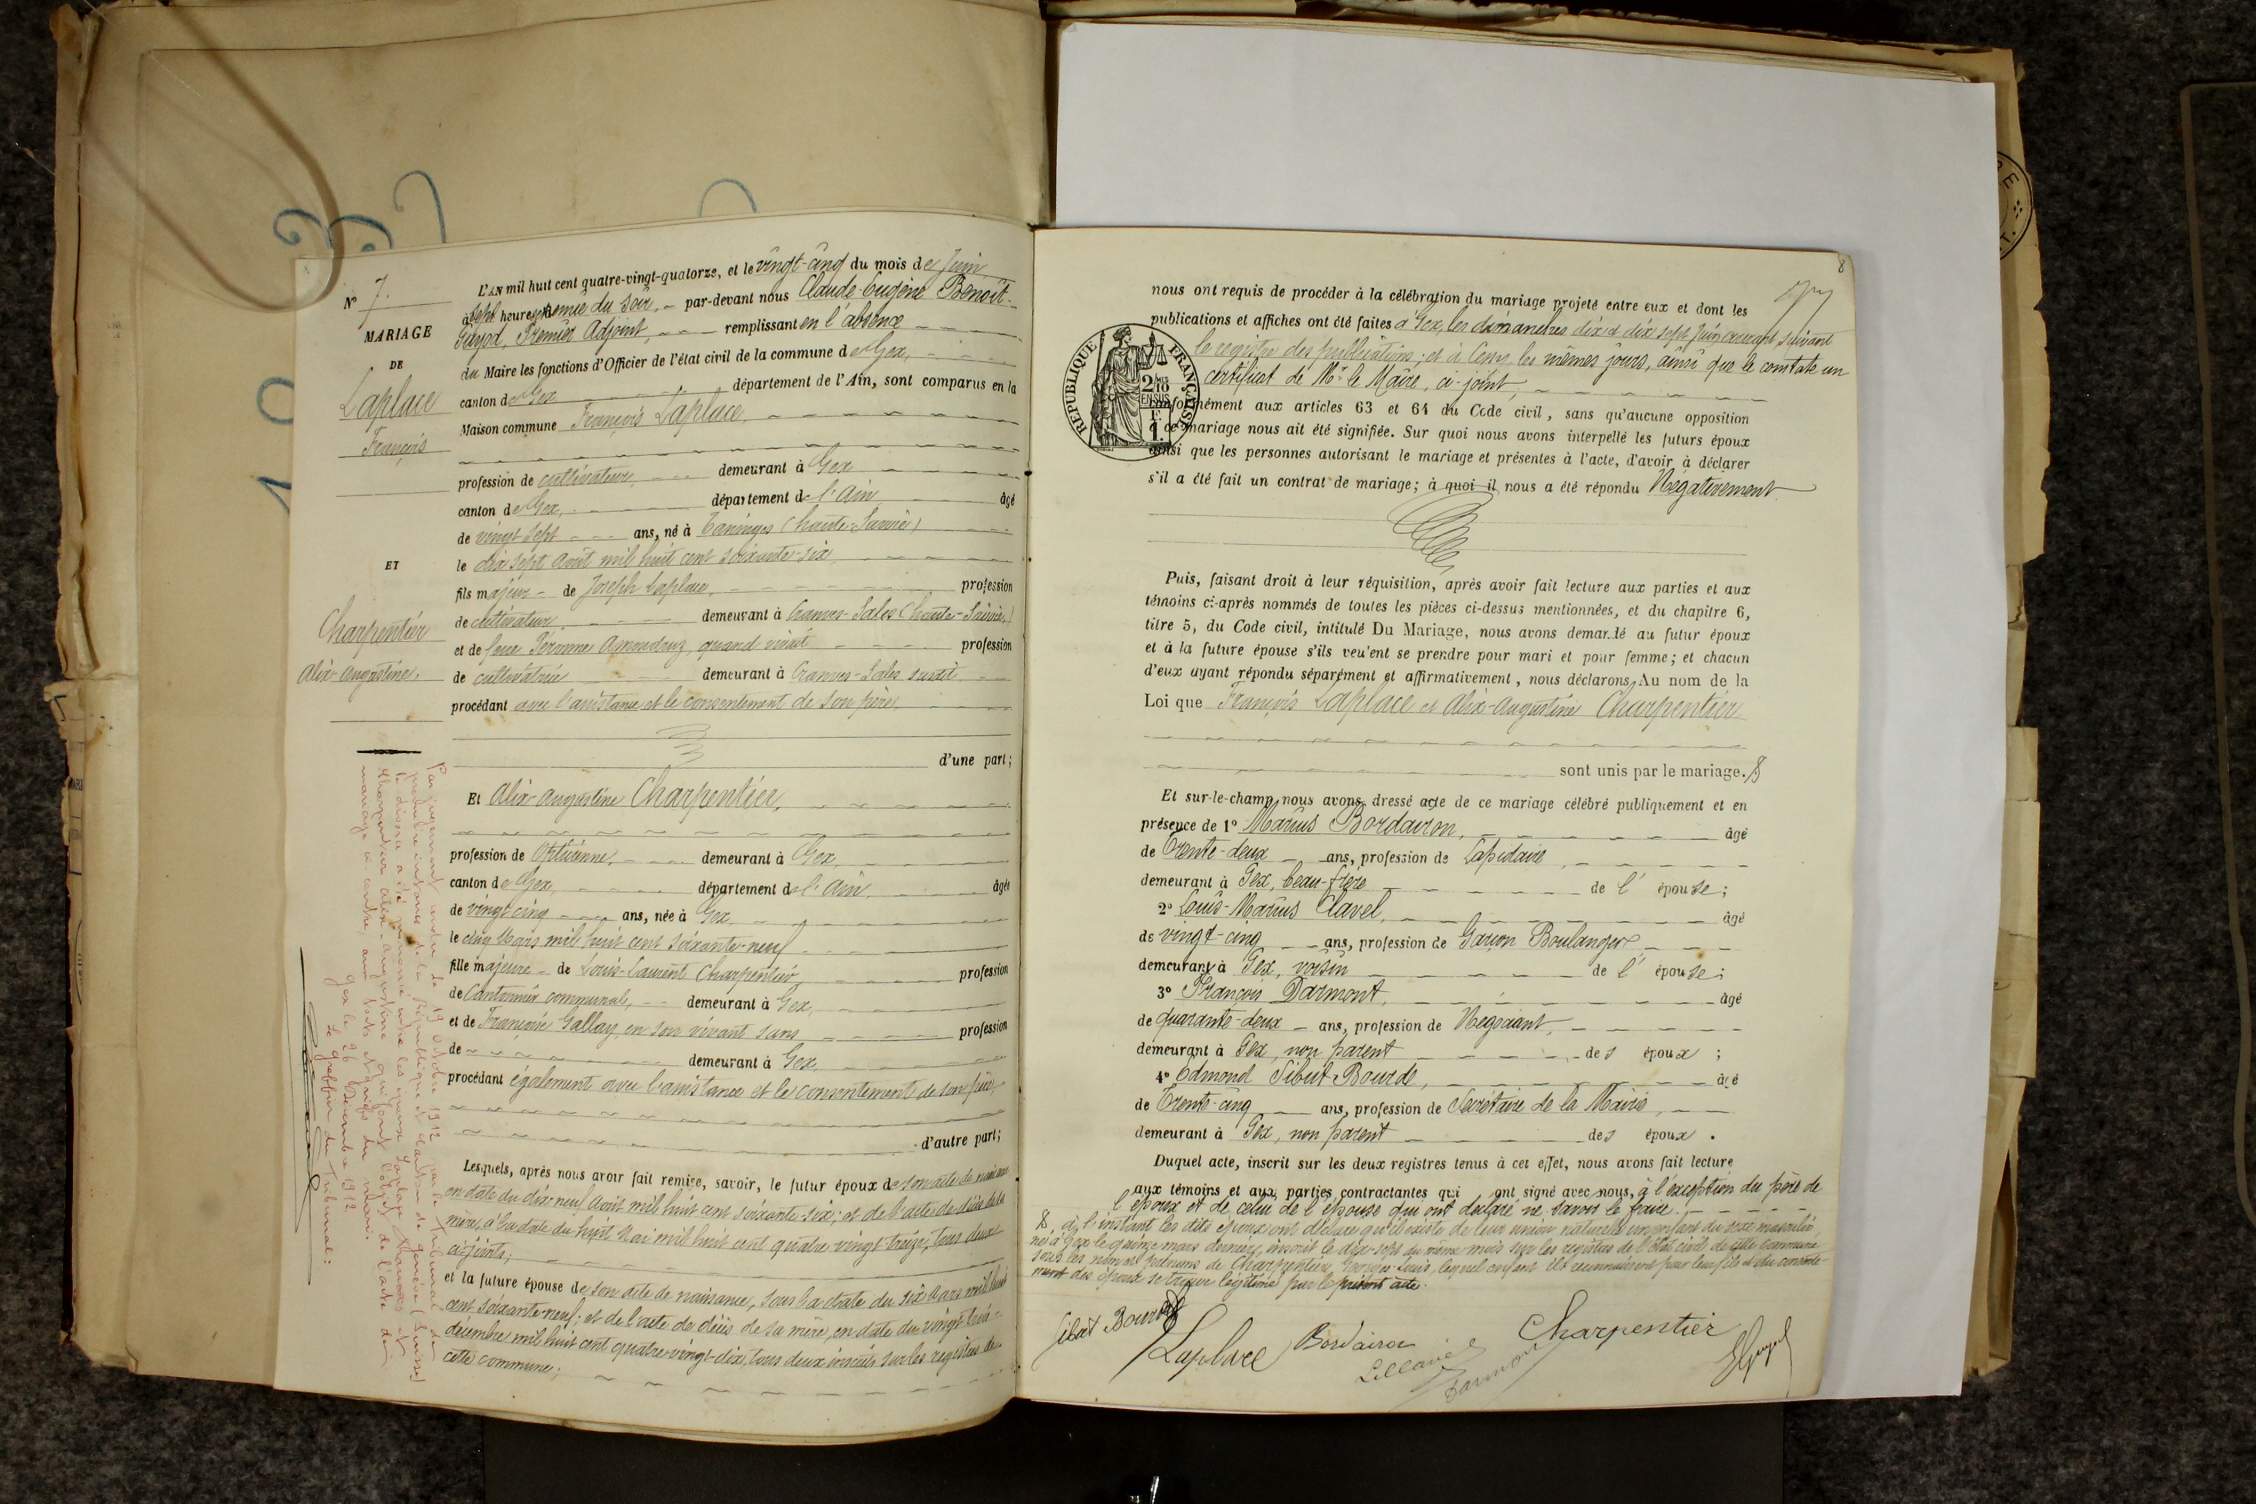 N° 7.
MARIAGE
DE
Laplace
François
ET
Charpentier
Alix-Augustine.
L'AN mil huit cent quatre-vingt-quatorze, et le vingt-cinq du mois de Juin
à sept heures demie du soir, par-devant nous Claude-Eugène Benoit-
Guyod, Premier Adjoint, remplissant en l'absence
du Maire les fonctions d'Officier de l'état civil de la commune de Gex,
canton de Gex département de l'Ain, sont comparus en la
Maison commune François Laplace,
profession de cultivateur, demeurant à Gex
canton de Gex, département de l'Ain âgé
de vingt sept ans, né à Taninges (Haute-Savoie)
le dix sept Août mil huit cent soixante-six
fils majeur de Joseph Laplace, profession
de cultivateur, demeurant à Cranves-Sales (Haute-Savoie)
et de feue Péronne Amoudruz, quand vivait profession
de cultivatrice demeurant à Cranves-Sales susdit
procédant avec l'assistance et le consentement de son père
d'une part;
Et Alix-Augustine Charpentier,
profession de demeurant à Gex
canton de Gex, département de l'Ain, âgée
de vingt cinq ans, née à Gex
le cinq Mars mil huit cent soixante-neuf
fille majeure de Louis-Laurent Charpentier, profession
de Cantonnier communal, demeurant à Gex,
et de Françoise Gallay, en son vivant sans profession
de demeurant à Gex,
procédant également avec l'assistance et le consentement de son père,
d'autre part;
Lesquels, après nous avoir fait remise, savoir, le futur époux de son acte de naissance
en date du dix-neuf Août mil huit cent soixante-six; et de l'acte de décès de sa
mère, à la date du huit Mai mil huit cent quatre vingt-treize, tous deux
ci-joints;
et la future épouse de son acte de naissance, sous la date du six Mars mil huit
cent soixante-neuf; et de l'acte de décès de sa mère, en date du vingt trois
décembre mil huit cent quatre-vingt-dix, tous deux inscrits sur les registres de
cette commune;
Par jugement rendu le 19 Octobre 1912 par le tribunal de
première instance de la République et Canton de Genève (Suisse)
le divorce a été prononcé entre les époux Laplace François et
Charpentier Alix-Augustine qui font l'objet de l'acte de
mariage ci contre, aux torts et griefs du mari.
Gex le 26 Décembre 1912
Le greffier du Tribunal:
8
nous ont requis de procéder à la célébration du mariage projeté entre eux et dont les
publications et affiches ont été faites à Gex, les dimanches dix et dix sept Juin courant, suivant
le registre des publications; et à Cessy, les mêmes jours, ainsi que le constate un
certificat de Mr le Maire, ci-joint,
RÉPUBLIQUE FRANÇAISE
conformément aux articles 63 et 64 du Code civil, sans qu'aucune opposition
à ce mariage nous ait été signifiée. Sur quoi nous avons interpellé les futurs époux
ainsi que les personnes autorisant le mariage et présentes à l'acte, d'avoir à déclarer
s'il a été fait un contrat de mariage; à quoi il nous a été répondu Négativement
Puis, faisant droit à leur réquisition, après avoir fait lecture aux parties et aux
témoins ci-après nommés de toutes les pièces ci-dessus mentionnées, et du chapitre 6,
titre 5, du Code civil, intitulé Du Mariage, nous avons demandé au futur époux
et à la future épouse s'ils veulent se prendre pour mari et pour femme; et chacun
d'eux ayant répondu séparément et affirmativement, nous déclarons, Au nom de la
Loi que François Laplace et Alix-Augustine Charpentier
sont unis par le mariage.
Et sur-le-champ nous avons dressé acte de ce mariage célébré publiquement et en
présence de 1° Marius Bordairon, âgé
de Trente-deux ans, profession de Lapidaire,
demeurant à Gex, beau-frère de l'épouse;
2° Louis-Marius Clavel, âgé
de vingt-cinq ans, profession de Garçon Boulanger,
demeurant à Gex, voisin de l'épouse;
3° François Darmont, âgé
de quarante-deux ans, profession de Négociant,
demeurant à Gex, non parent des époux;
4° Edmond Sibut-Bourde, âgé
de Trente-cinq ans, profession de Secrétaire de la Mairie,
demeurant à Gex, non parent des époux.
Duquel acte, inscrit sur les deux registres tenus à cet effet, nous avons fait lecture
aux témoins et aux parties contractantes qui ont signé avec nous, à l'exception du père de
l'époux et de celui de l'épouse qui ont déclaré ne savoir le faire.
à l'instant les dits époux ont déclaré qu'il existe de leur union naturelle un enfant du sexe masculin
né à Gex le quinze mars dernier, inscrit le dix-sept du même mois sur les registres de l'état civil de cette commune
sous les nom et prénoms de Charpentier, Georges-Louis, lequel enfant ils reconnaissent pour leur fils et du consente-
ment des époux se trouve légitimé par le présent acte.
Sibut Bourde
Laplace
Bordairon
L Clavel
Darmont
Charpentier